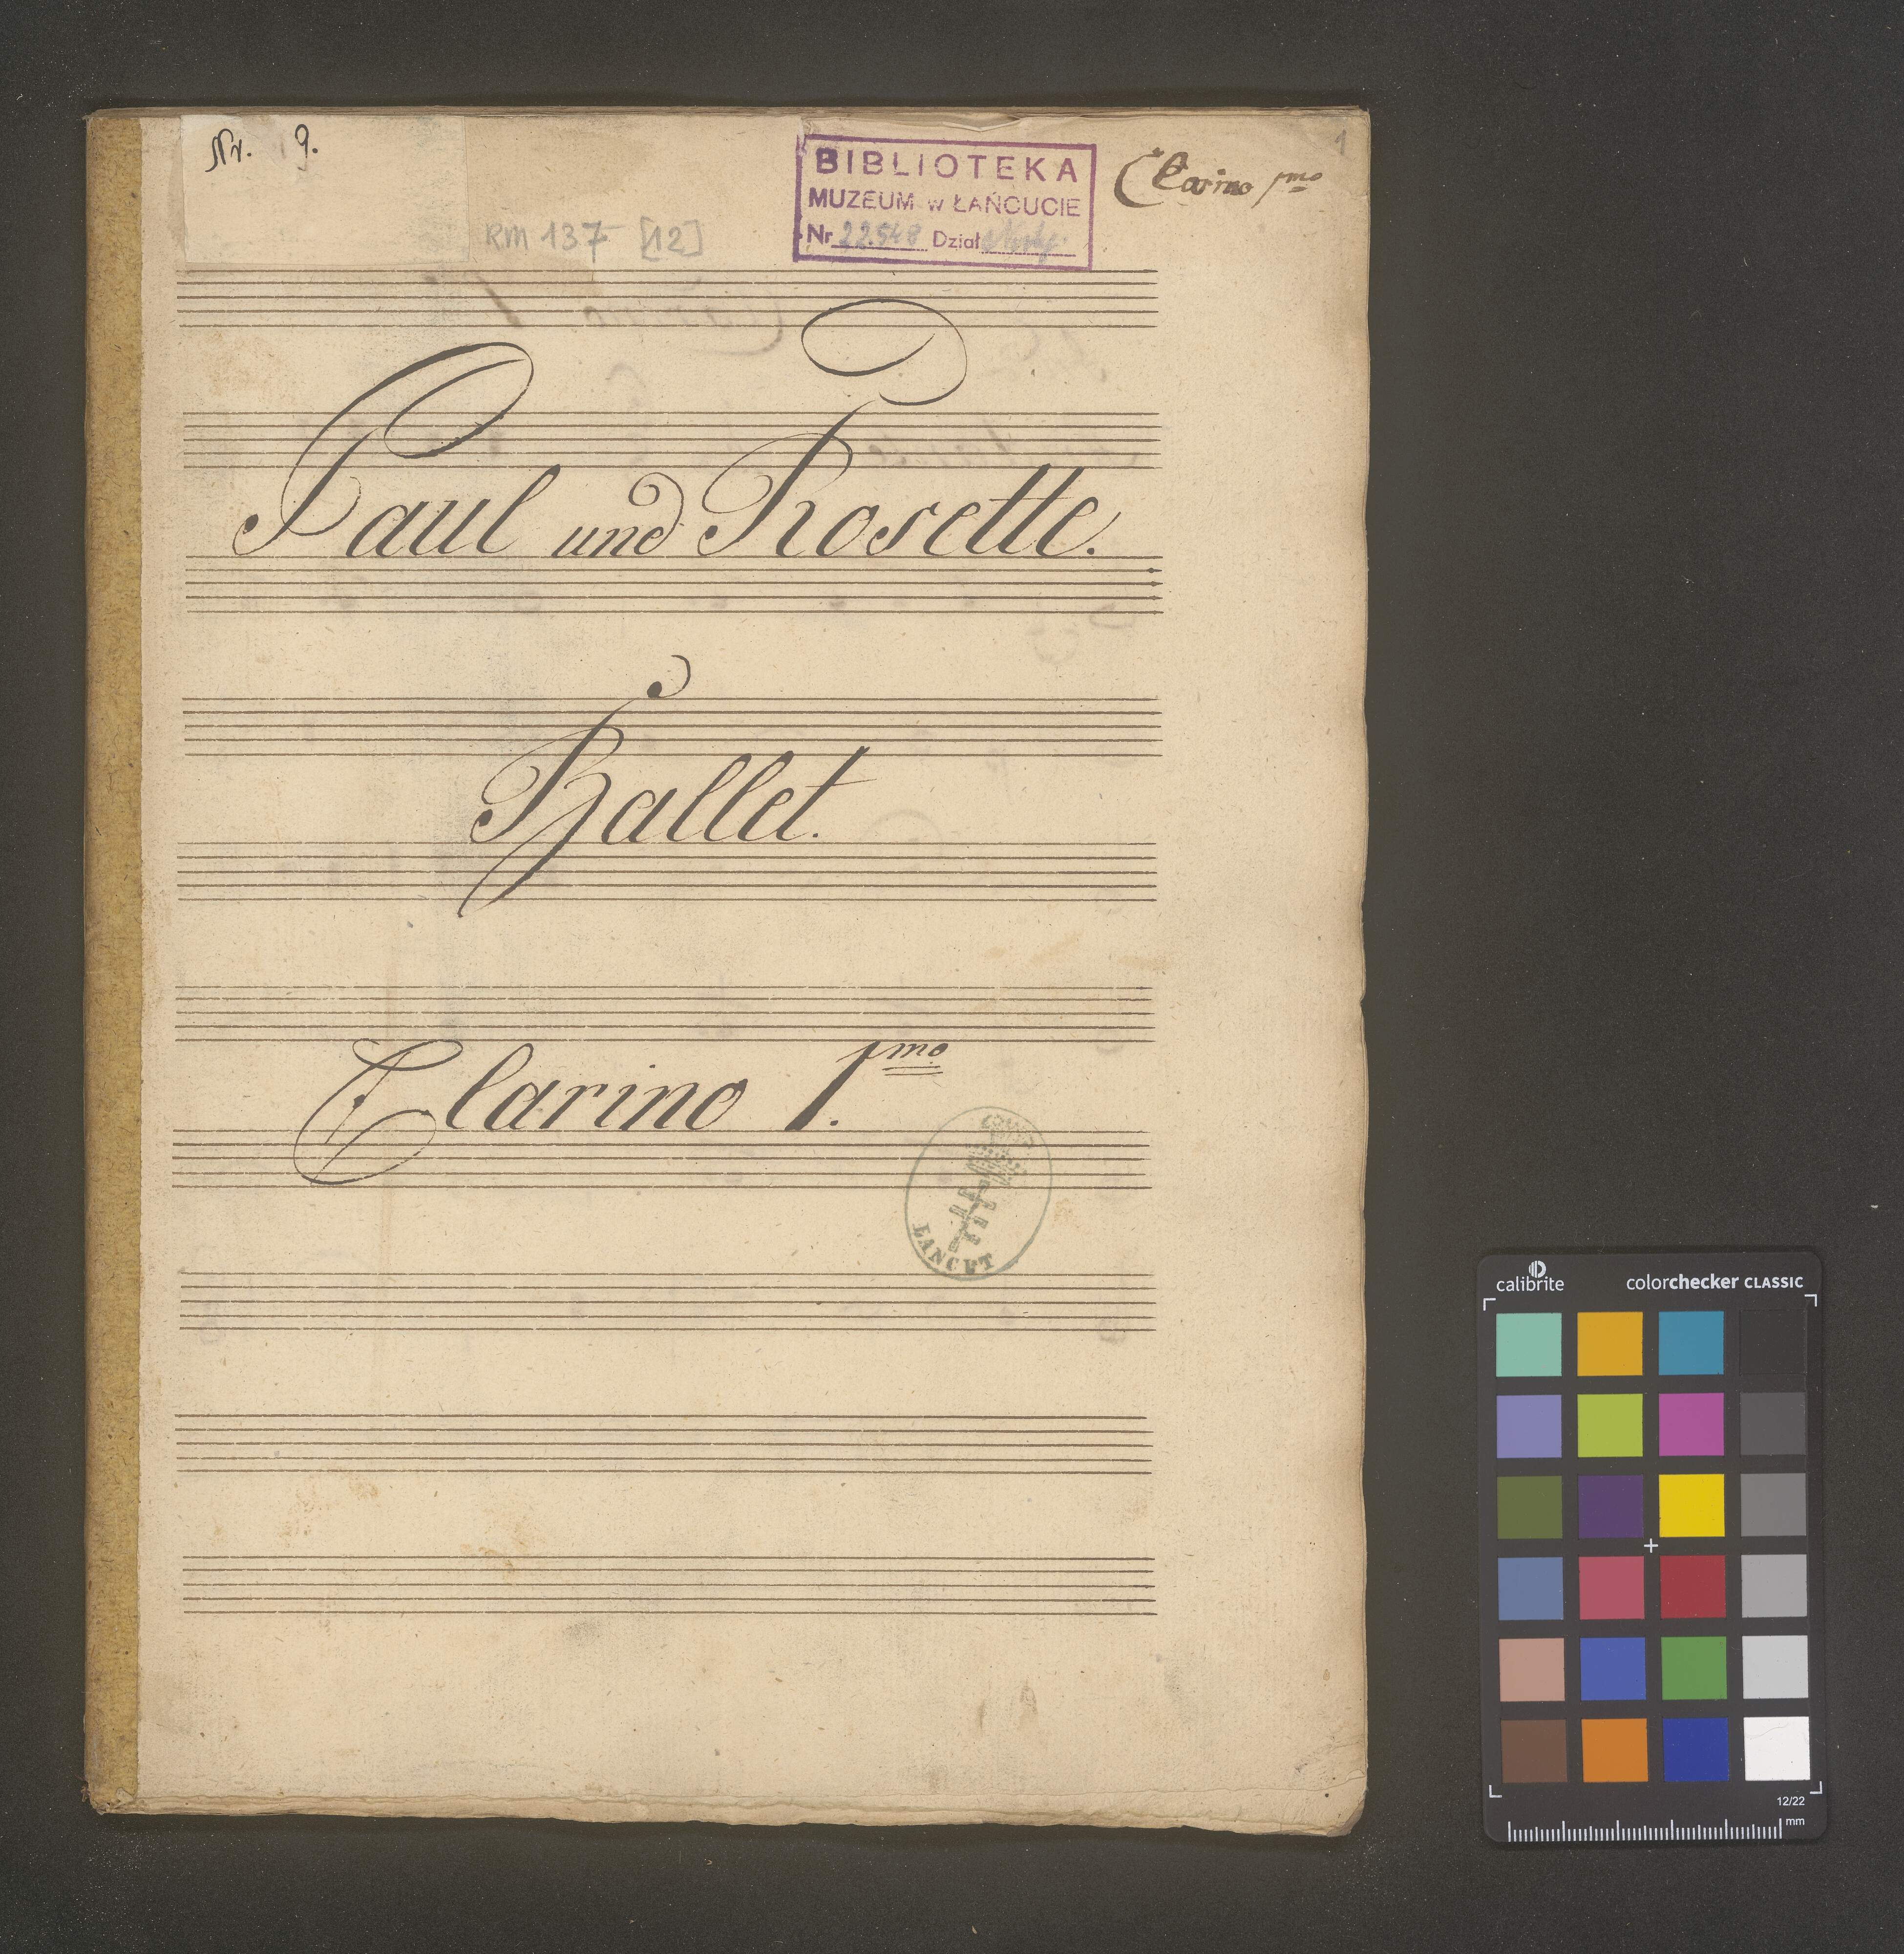 Nr. 9.
BIBLIOTEKA
MUZEUM w ŁAŃCUCIE
Nr 22.548 Dział
Clarino 1mo
1
RM 137 [12]
Paul und Rosette.
Ballet.
Clarino 1.mo
ŁANCUT
calibrite colorchecker CLASSIC
12/22
mm